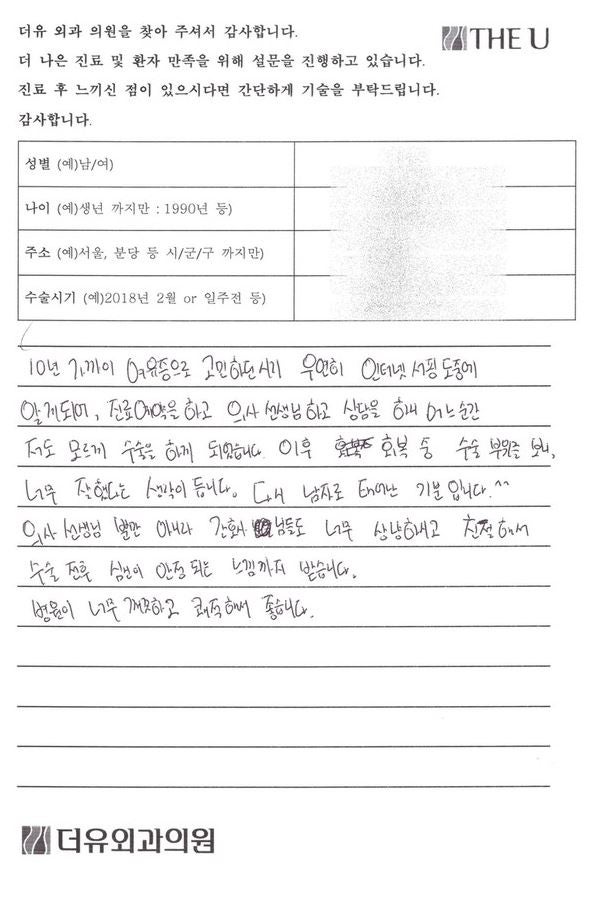 더유 외과 의원을 찾아 주셔서 감사합니다.
THE U
더 나은 진료 및 환자 만족을 위해 설문을 진행하고 있습니다.
진료 후 느끼신 점이 있으시다면 간단하게 기술을 부탁드립니다.
감사합니다.
성별 (예)남/여)
나이 (예)생년 까지만 : 1990년 등)
주소 (예)서울, 분당 등 시/군/구 까지만)
수술시기 (예)2018년 2월 or 일주전 등)
10년 가까이 여유증으로 고민하던시기 우연히 인터넷 서핑 도중에
알게되어, 진료예약을 하고 의사 선생님하고 상담을 하니 어느순간
저도 모르게 수술을 하게 되었습니다. 이후 회복 중 수술 부위를 보니,
너무 잘했다는 생각이 듭니다. 다시 남자로 태어난 기분입니다.^^
의사 선생님 뿐만 아니라 간호사 님들도 너무 상냥하시고 친절해서
수술 전후 심신이 안정되는 느낌까지 받습니다.
병원이 너무 깨끗하고 쾌적해서 좋습니다.
더유외과의원